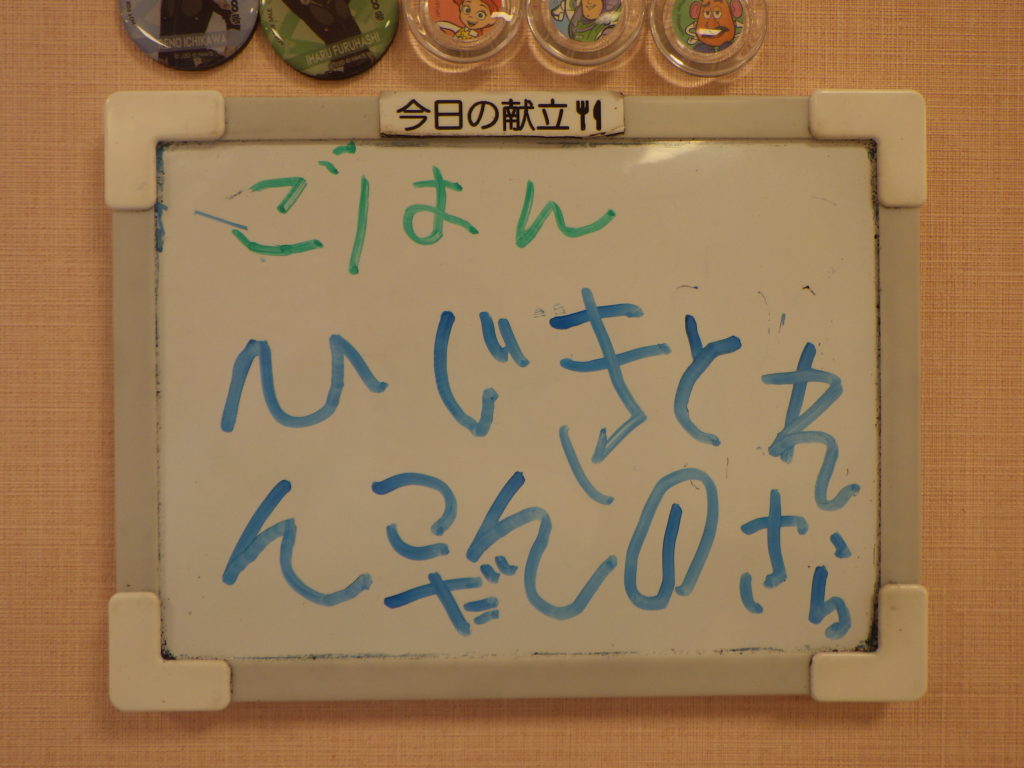 ENO ICHIKAWA
IHARU FURUHASHI
今日の献立
ごはん
ひじきとれ
んこんのさら
だ